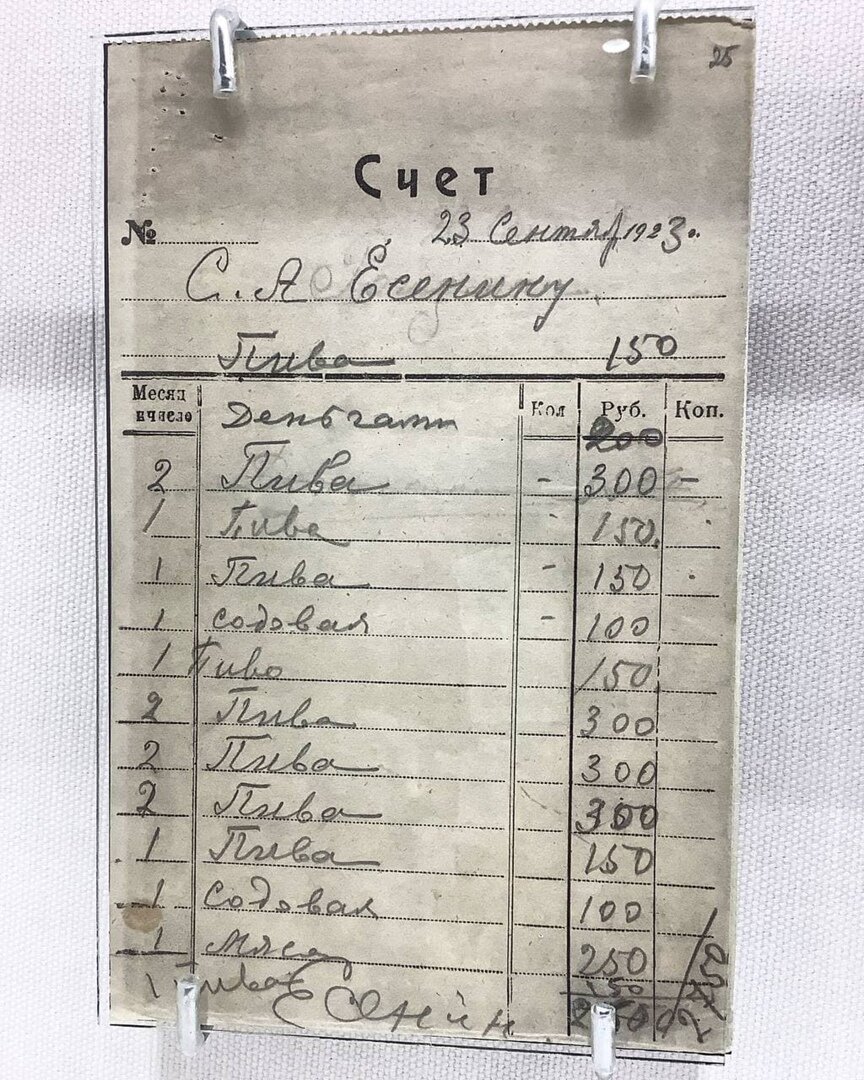 25
Счет
№ 23 Сентяб 1923г.
С. А Есенину
Пива 150
Месяц и число Деньгами Кол Руб. Коп.
200
2 Пива - 300 -
1 Пива - 150
1 Пива - 150
1 содовая - 100
1 Пиво 150
2 Пива 300
2 Пива 300
2 Пива 300
1 Пива 150
1 Содовая 100
1 Мясо 250
1 Пива 150
Есенин